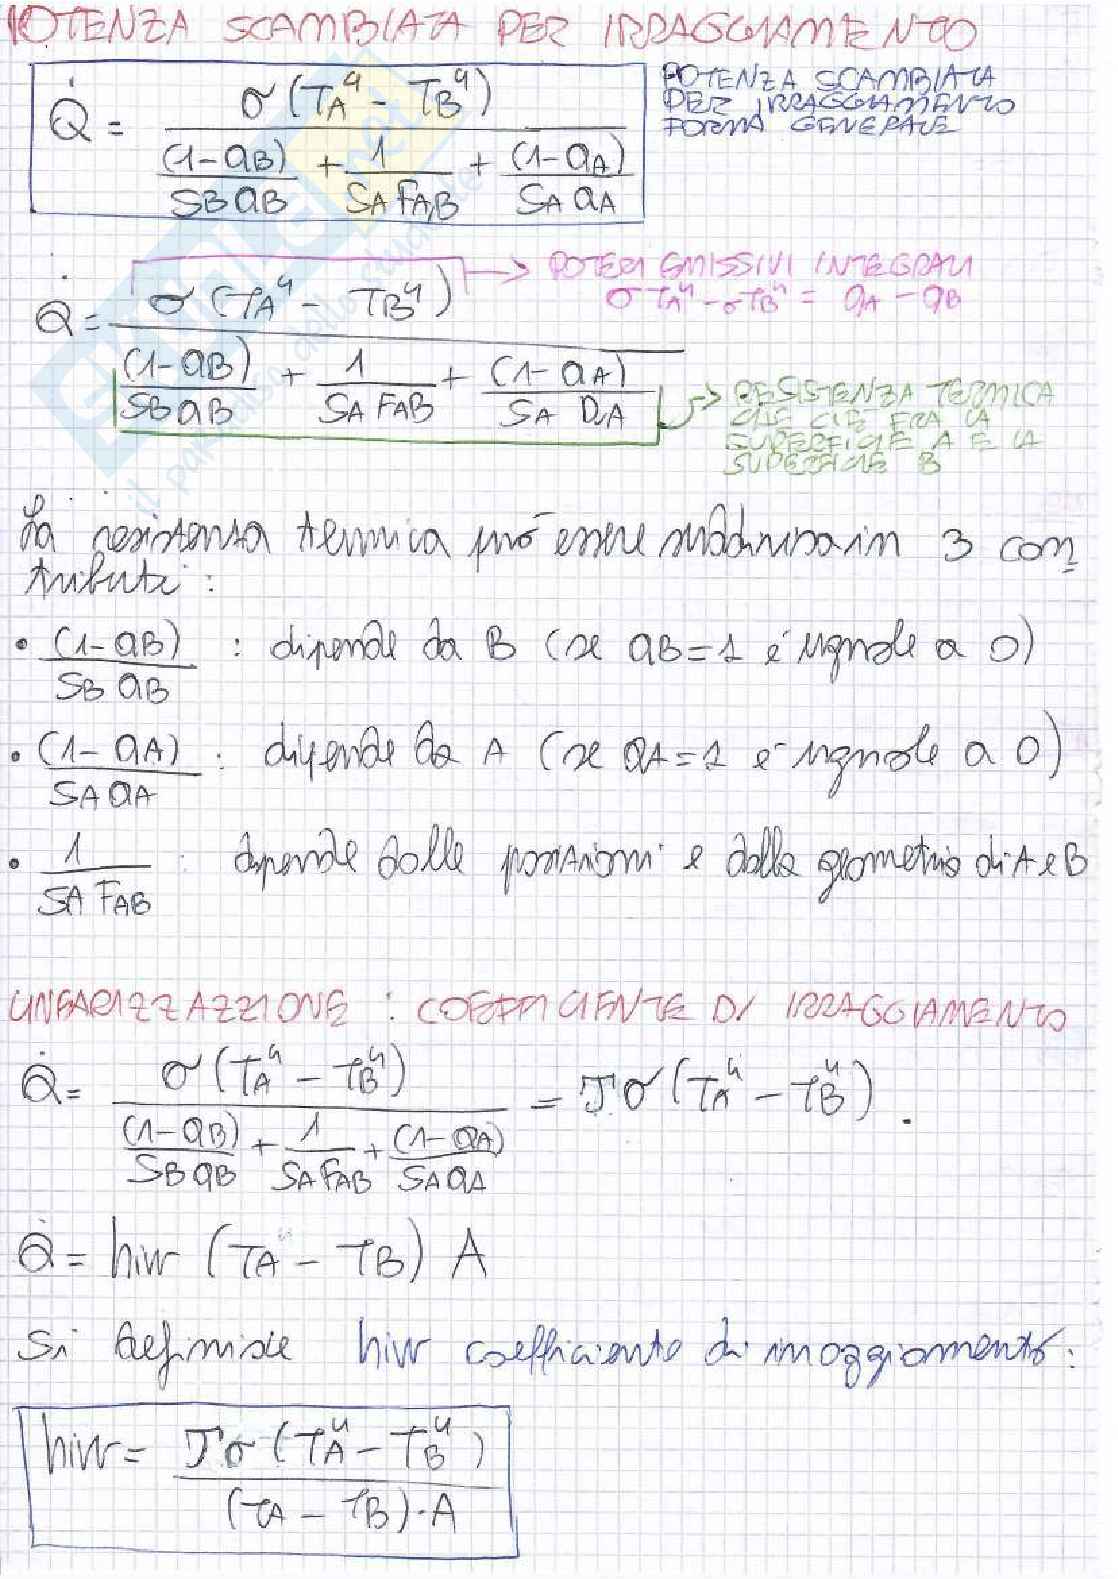 POTENZA SCAMBIATA PER IRRAGGIAMENTO
Q̇ = σ(TA⁴ - TB⁴) / [(1-aB)/(SB aB) + 1/(SA FA,B) + (1-aA)/(SA aA)]
POTENZA SCAMBIATA
PER IRRAGGIAMENTO
FORMA GENERALE
→ POTERI EMISSIVI INTEGRALI
σTA⁴ - σTB⁴ = qA - qB
Q̇ = σ(TA⁴ - TB⁴) / [(1-aB)/(SB aB) + 1/(SA FAB) + (1-aA)/(SA aA)]
→ RESISTENZA TERMICA
CHE C'È FRA LA
SUPERFICIE A E LA
SUPERFICIE B
La resistenza termica può essere suddivisa in 3 con
tributi:
• (1-aB)/(SB aB) : dipende da B (se aB=1 è uguale a 0)
• (1-aA)/(SA aA) : dipende da A (se aA=1 è uguale a 0)
• 1/(SA FAB) : dipende dalle posizioni e dalla geometria di A e B
LINEARIZZAZZIONE : COEFFICIENTE DI IRRAGGIAMENTO
Q̇ = σ(TA⁴ - TB⁴) / [(1-aB)/(SB aB) + 1/(SA FAB) + (1-aA)/(SA aA)] = J σ(TA⁴ - TB⁴).
Q̇ = hirr (TA - TB) A
Si definisce hirr coefficiente di irraggiamento:
hirr = J σ(TA⁴ - TB⁴) / (TA - TB)·A